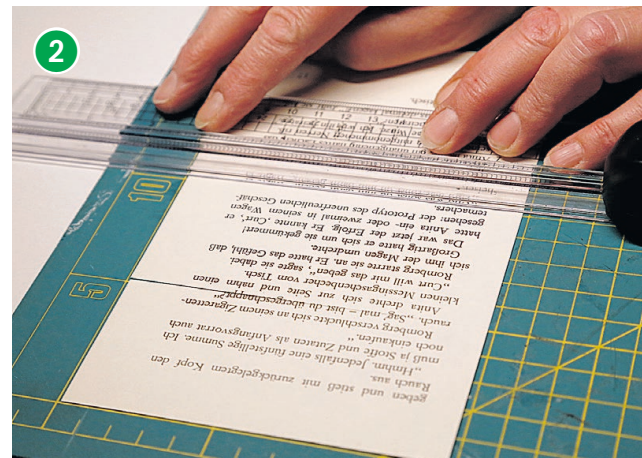 2
10
5
10 11 12 13
geben und stieß mit zurückgelegtem Kopf den
Rauch aus.
„Hmhm. Jedenfalls eine fünfstellige Summe. Ich
muß ja Stoffe und Zutaten als Anfangsvorrat auch
noch einkaufen.“
Romberg verschluckte sich an seinem Zigaretten-
rauch. „Sag' mal – bist du übergeschnappt?“
Anita drehte sich zur Seite und nahm einen
kleinen Messingaschenbecher vom Tisch.
„Curt will mir das geben“, sagte sie dabei.
Romberg starrte sie an. Er hatte das Gefühl, daß
sich ihm der Magen umdrehte.
Großartig hatte er sich um sie gekümmert!
Das war jetzt der Erfolg. Er kannte ‚Curt‘, er
hatte Anita ein- oder zweimal in seinem Wagen
gesehen: der Prototyp des unerfreulichen Geschäf-
temachers.